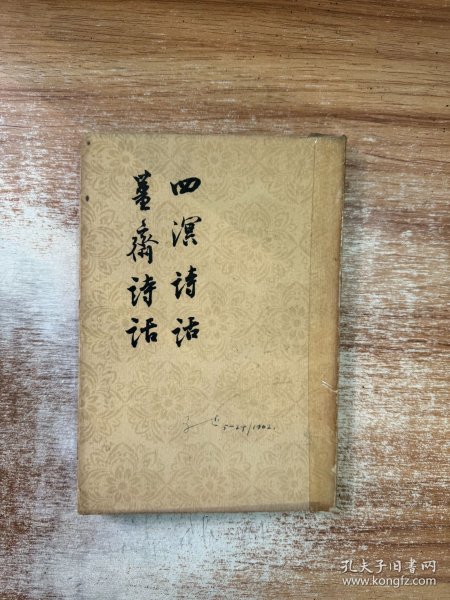 四溟詩話
薑齋詩話
5-25/1962.
孔夫子旧书网
www.kongfz.com